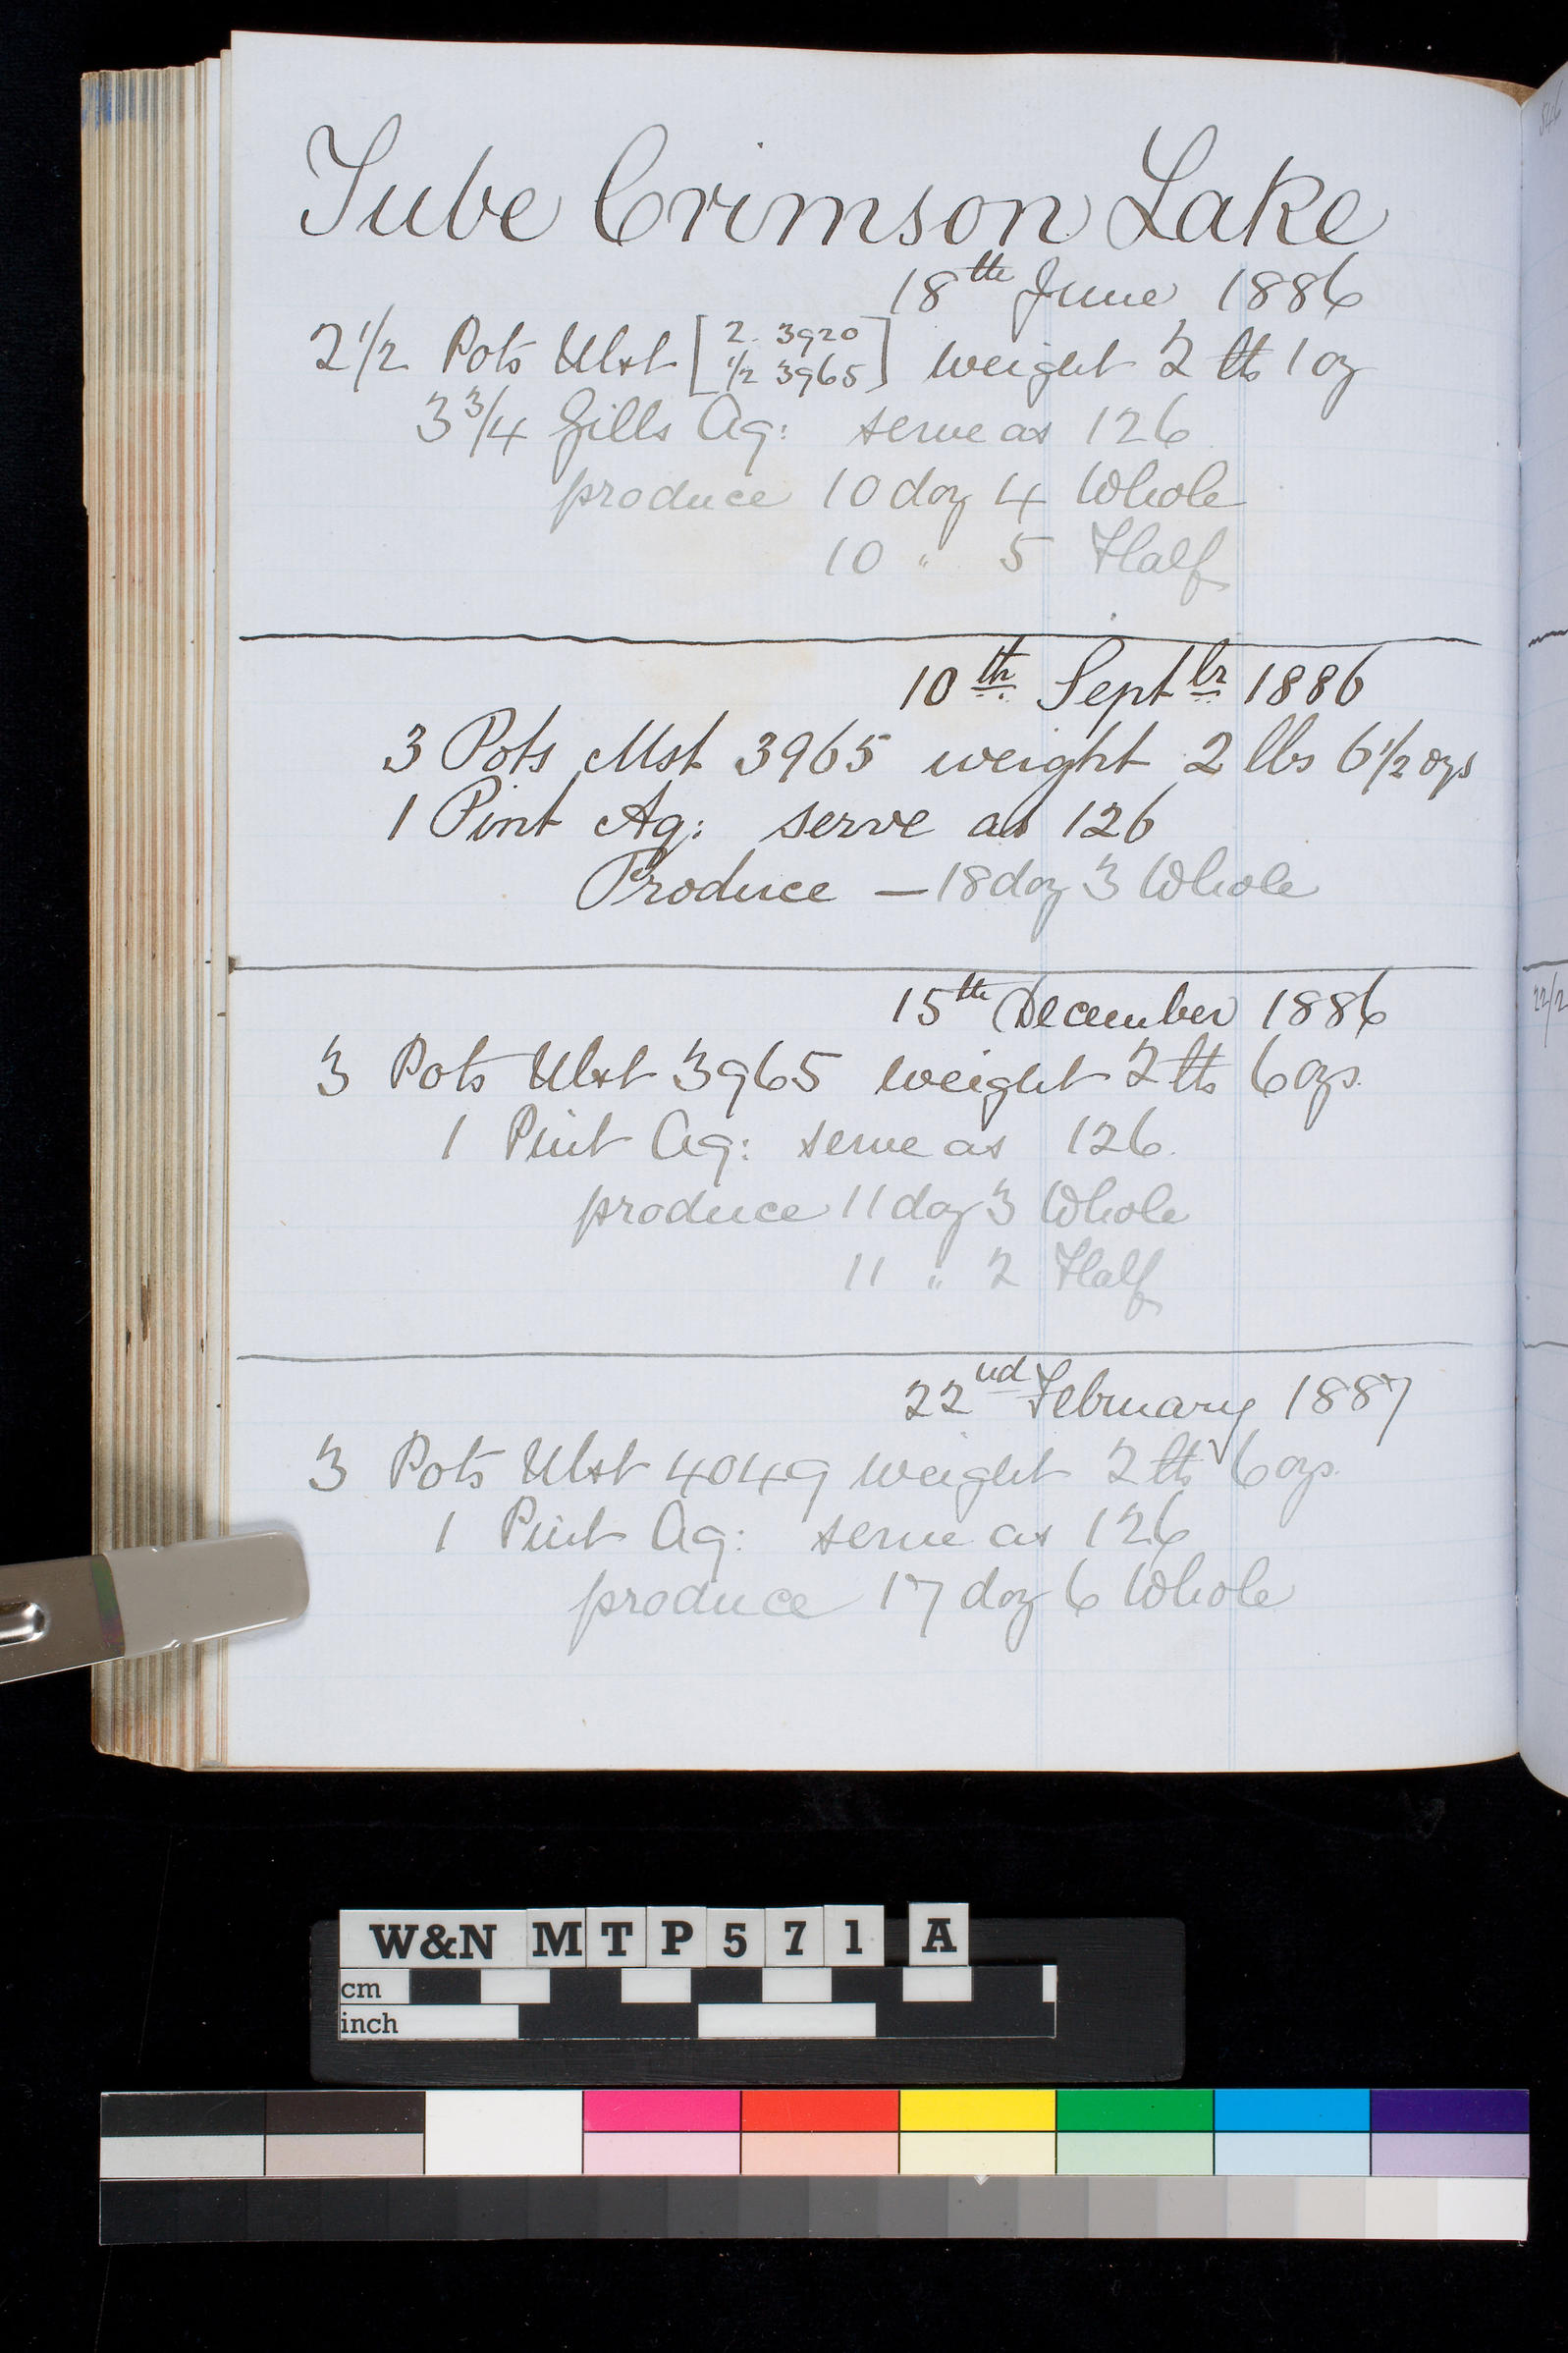 Tube Crimson Lake
18th June 1886
2 1/2 Pots Ulst [2. 3920 1/2 3965] weight 2 lbs 1 oz
3 3/4 Gills Aq: serve as 126
produce 10 doz 4 Whole
10 " 5 Half
10th Septbr 1886
3 Pots Mst 3965 weight 2 lbs 6 1/2 ozs
1 Pint Aq: serve as 126
Produce — 18 doz 3 Whole
15th December 1886
3 Pots Ulst 3965 weight 2 lbs 6 ozs.
1 Pint Aq: serve as 126.
produce 11 doz 3 Whole
11 " 2 Half
22nd February 1887
3 Pots Ulst 4049 weight 2 lbs 6 ozs.
1 Pint Aq: serve as 126
produce 17 doz 6 Whole
W&N MTP571 A
cm
inch